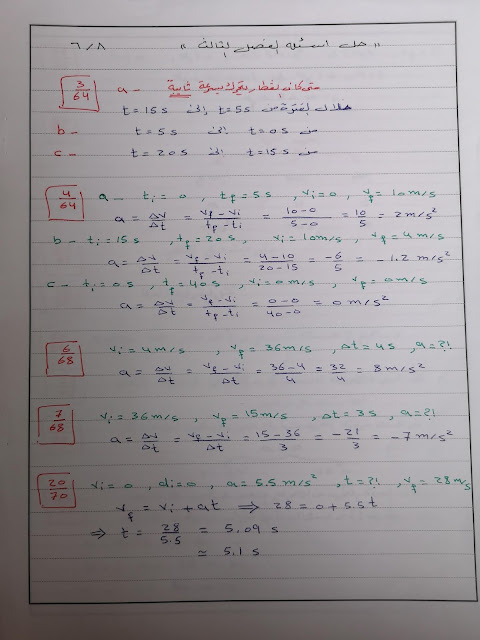 « حل اسئله الفصل الثالث » ٦/٨
3/64 a - متى كانه القطار يتحرك بسرعة ثابتة
خلال الفترة من t=5s إلى t=15s
b - من t=0s إلى t=5s
c - من t=15s إلى t=20s
4/64 a - ti=0 , tf=5s , vi=0 , vf=10m/s
a = Δv/Δt = vf-vi/tf-ti = 10-0/5-0 = 10/5 = 2m/s²
b - ti=15s , tf=20s , vi=10m/s , vf=4m/s
a = Δv/Δt = vf-vi/tf-ti = 4-10/20-15 = -6/5 = -1.2 m/s²
c - ti=0s , tf=40s , vi=0m/s , vf=0m/s
a = Δv/Δt = vf-vi/tf-ti = 0-0/40-0 = 0 m/s²
6/68 vi=4m/s , vf=36m/s , Δt=4s , a=?!
a = Δv/Δt = vf-vi/Δt = 36-4/4 = 32/4 = 8m/s²
7/68 vi=36m/s , vf=15m/s , Δt=3s , a=?!
a = Δv/Δt = vf-vi/Δt = 15-36/3 = -21/3 = -7m/s²
20/70 vi=0 , di=0 , a=5.5m/s² , t=?! , vf=28m/s
vf = vi + at ⇒ 28=0+5.5t
⇒ t = 28/5.5 = 5.09 s
≃ 5.1 s